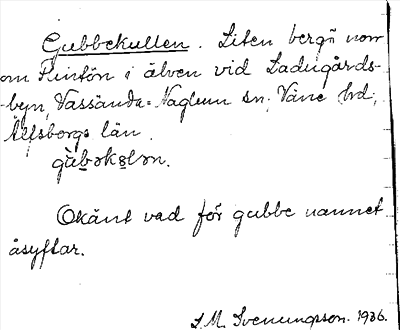 Gubbekullen. Liten bergö norr
om Flintön i älven vid Ladugårds-
byn, Vassända-Naglum sn, Väne hd,
Älfsborgs län.
gùb̲əku̲lən.
Okänt vad för gubbe namnet
åsyftar.
S.M. Svenungsson. 1936.